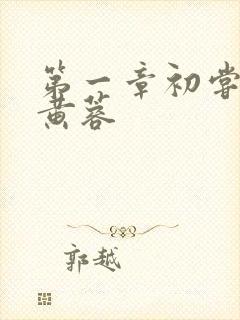 第一章初尝
黄蓉
郭越